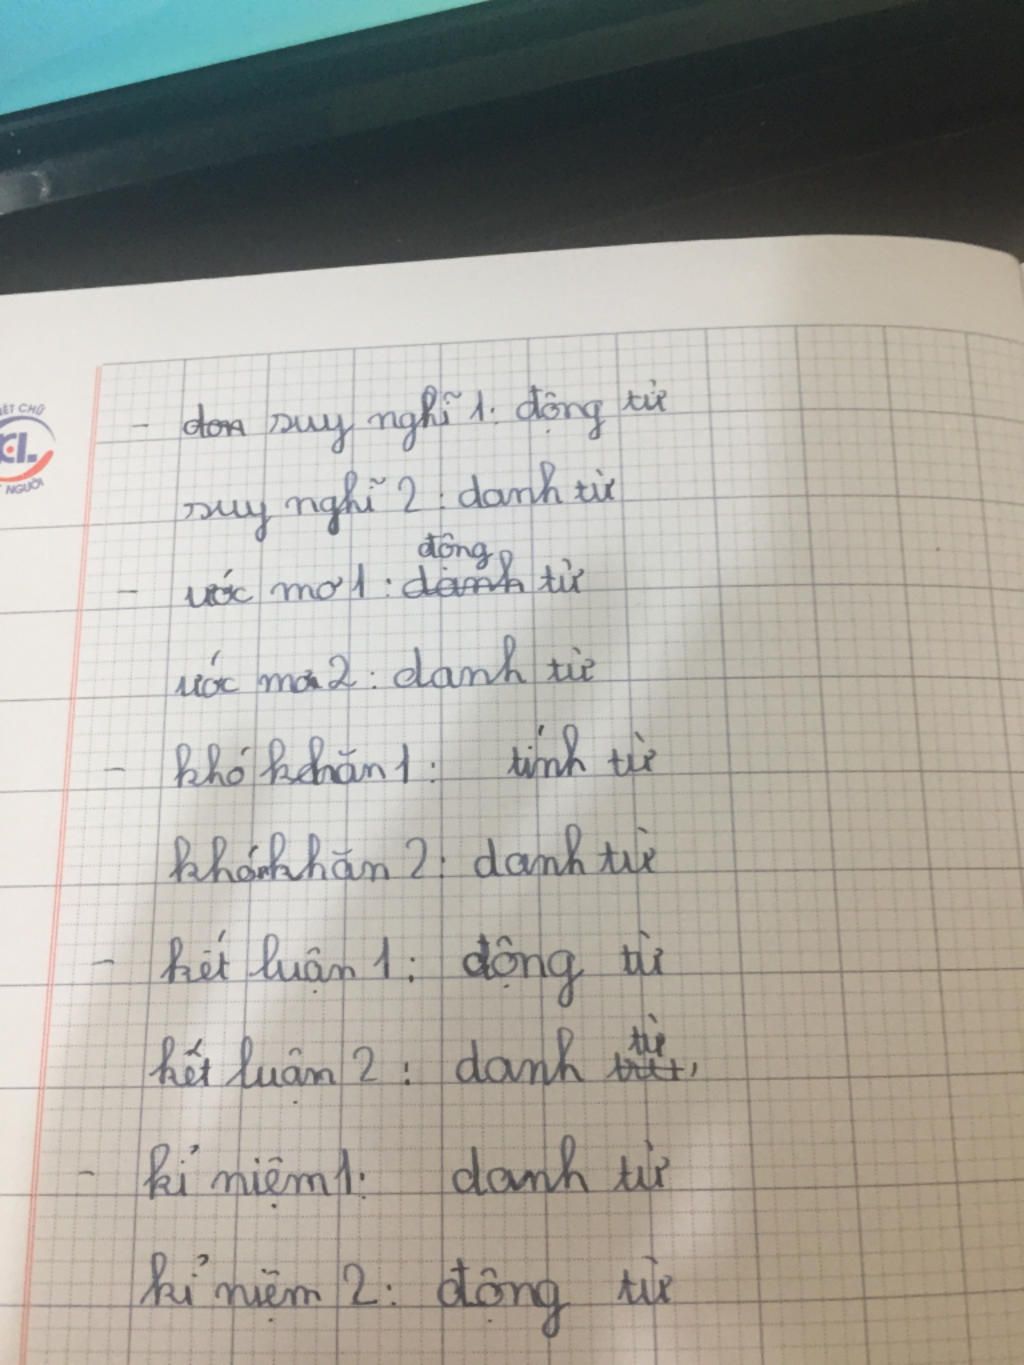 ÉT CHỮ
KL
NGƯỜI
- don suy nghĩ 1: động từ
suy nghĩ 2: danh từ
động
- ước mơ 1: danh từ
ước mơ 2: danh từ
- khó khăn 1: tính từ
khó khăn 2: danh từ
- kết luận 1: động từ
từ
kết luận 2: danh
- kỉ niệm 1: danh từ
kỉ niệm 2: động từ